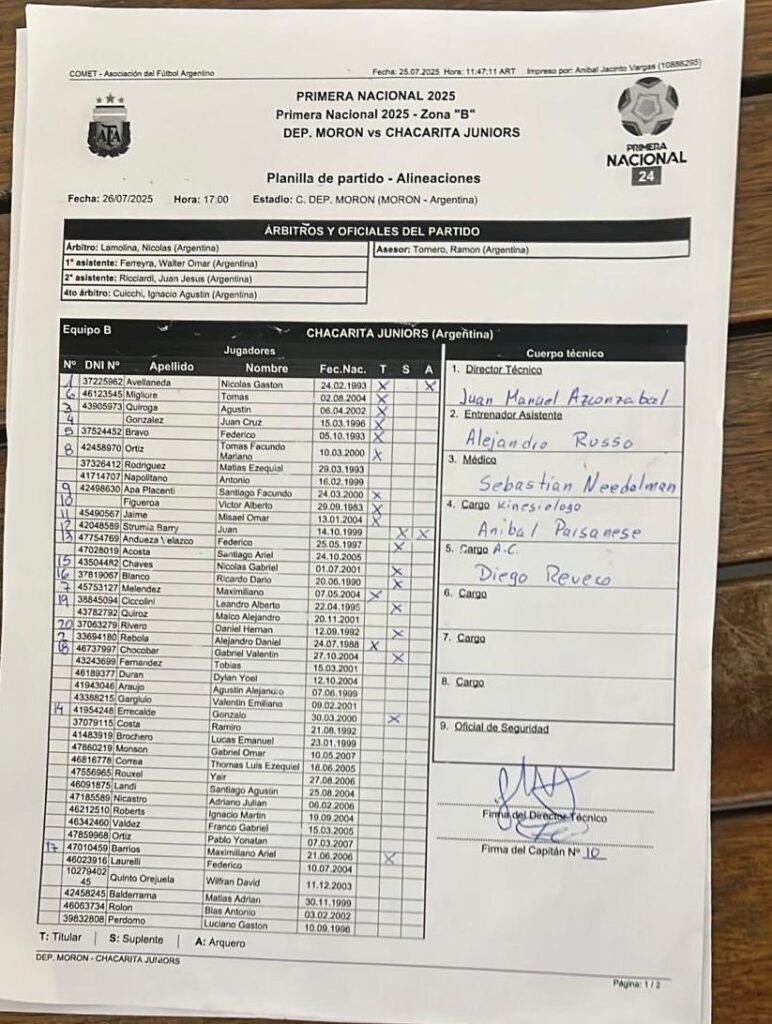 COMET - Asociación del Fútbol Argentino
Fecha: 25.07.2025 Hora: 11:47:11 ART Impreso por: Anibal Jacinto Vargas (10886295)
AFA
PRIMERA NACIONAL 2025
Primera Nacional 2025 - Zona "B"
DEP. MORON vs CHACARITA JUNIORS
PRIMERA
NACIONAL
24
Planilla de partido - Alineaciones
Fecha: 26/07/2025 Hora: 17:00 Estadio: C. DEP. MORON (MORON - Argentina)
ÁRBITROS Y OFICIALES DEL PARTIDO
Árbitro: Lamolina, Nicolas (Argentina)
Asesor: Tomero, Ramon (Argentina)
1° asistente: Ferreyra, Walter Omar (Argentina)
2° asistente: Ricciardi, Juan Jesus (Argentina)
4to árbitro: Cuicchi, Ignacio Agustin (Argentina)
Equipo B CHACARITA JUNIORS (Argentina)
Jugadores
Nº DNI Nº Apellido Nombre Fec.Nac. T S A
1 37225962 Avellaneda Nicolas Gaston 24.02.1993 X X
6 46123545 Migliore Tomas 02.08.2004 X
3 43905973 Quiroga Agustin 06.04.2002 X
4 Gonzalez Juan Cruz 15.03.1996 X
5 37524452 Bravo Federico 05.10.1993 X
8 42458970 Ortiz Tomas Facundo Mariano 10.03.2000 X
37326412 Rodriguez Matias Ezequial 29.03.1993
41714707 Napolitano Antonio 16.02.1999
9 42498630 Apa Placenti Santiago Facundo 24.03.2000 X
10 Figueroa Victor Alberto 29.09.1983 X
11 45490567 Jaime Misael Omar 13.01.2004 X
12 42048589 Strumia Barry Juan 14.10.1999 X X
13 47754769 Andueza Velazco Federico 25.05.1997 X
47028019 Acosta Santiago Ariel 24.10.2005
15 43504482 Chaves Nicolas Gabriel 01.07.2001 X
16 37819067 Blanco Ricardo Dario 20.06.1990 X
7 45753127 Melendez Maximiliano 07.05.2004 X
19 38845094 Ciccolini Leandro Alberto 22.04.1995 X
43782792 Quiroz Maico Alejandro 20.11.2001
20 37063279 Rivero Daniel Hernan 12.09.1992 X
2 33694180 Rebola Alejandro Daniel 24.07.1988 X
18 46737997 Chocobar Gabriel Valentin 27.10.2004 X
43243699 Fernandez Tobias 15.03.2001
46189377 Duran Dylan Yoel 12.10.2004
41943046 Araujo Agustin Alejandro 07.06.1999
43388215 Gargiulo Valentin Emiliano 09.02.2001
14 41954248 Errecalde Gonzalo 30.03.2000 X
37079115 Costa Ramiro 21.08.1992
41483919 Brochero Lucas Emanuel 23.01.1999
47860219 Monson Gabriel Omar 10.05.2007
46816778 Correa Thomas Luis Ezequiel 18.06.2005
47556965 Rouxel Yair 27.08.2006
46091875 Landi Santiago Agustin 25.08.2004
47185589 Nicastro Adriano Julian 06.02.2006
46212510 Roberts Ignacio Martin 19.09.2004
46342460 Valdez Franco Gabriel 15.03.2005
47859968 Ortiz Pablo Yonatan 07.03.2007
17 47010459 Barrios Maximiliano Ariel 21.06.2006 X
46023916 Laurelli Federico 10.07.2004
1027940245 Quinto Orejuela Wilfran David 11.12.2003
42458245 Balderrama Matias Adrian 30.11.1999
46063734 Rolon Blas Antonio 03.02.2002
39832808 Perdomo Luciano Gaston 10.09.1996
T: Titular | S: Suplente | A: Arquero
Cuerpo técnico
1. Director Técnico
Juan Manuel Azconzabal
2. Entrenador Asistente
Alejandro Russo
3. Médico
Sebastian Needelman
4. Cargo Kinesiologo
Anibal Paisanese
5. Cargo A.C.
Diego Reveco
6. Cargo
7. Cargo
8. Cargo
9. Oficial de Seguridad
Firma del Director Técnico
Firma del Capitán Nº 10
DEP. MORON - CHACARITA JUNIORS
Página: 1 / 2